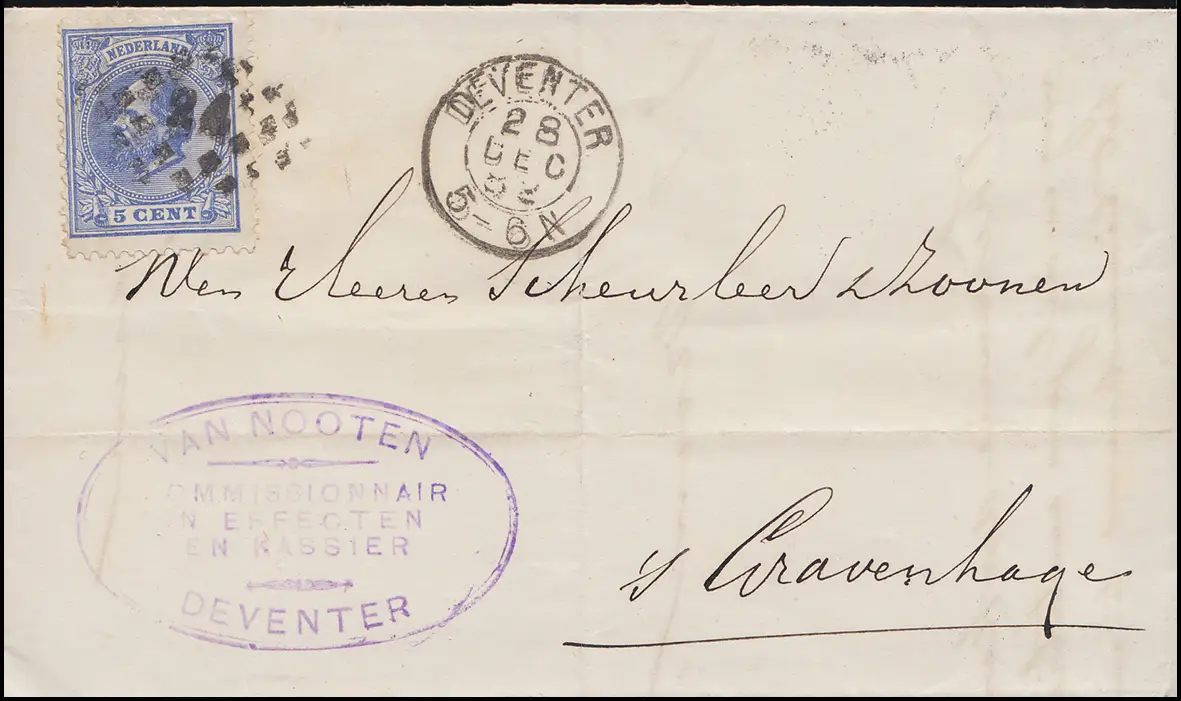 NEDERLAND
5 CENT
DEVENTER
28
DEC
5-6N
Heeren Scheurleer & Zoonen
VAN NOOTEN
COMMISSIONNAIR
IN EFFECTEN
EN KASSIER
DEVENTER
's Gravenhage